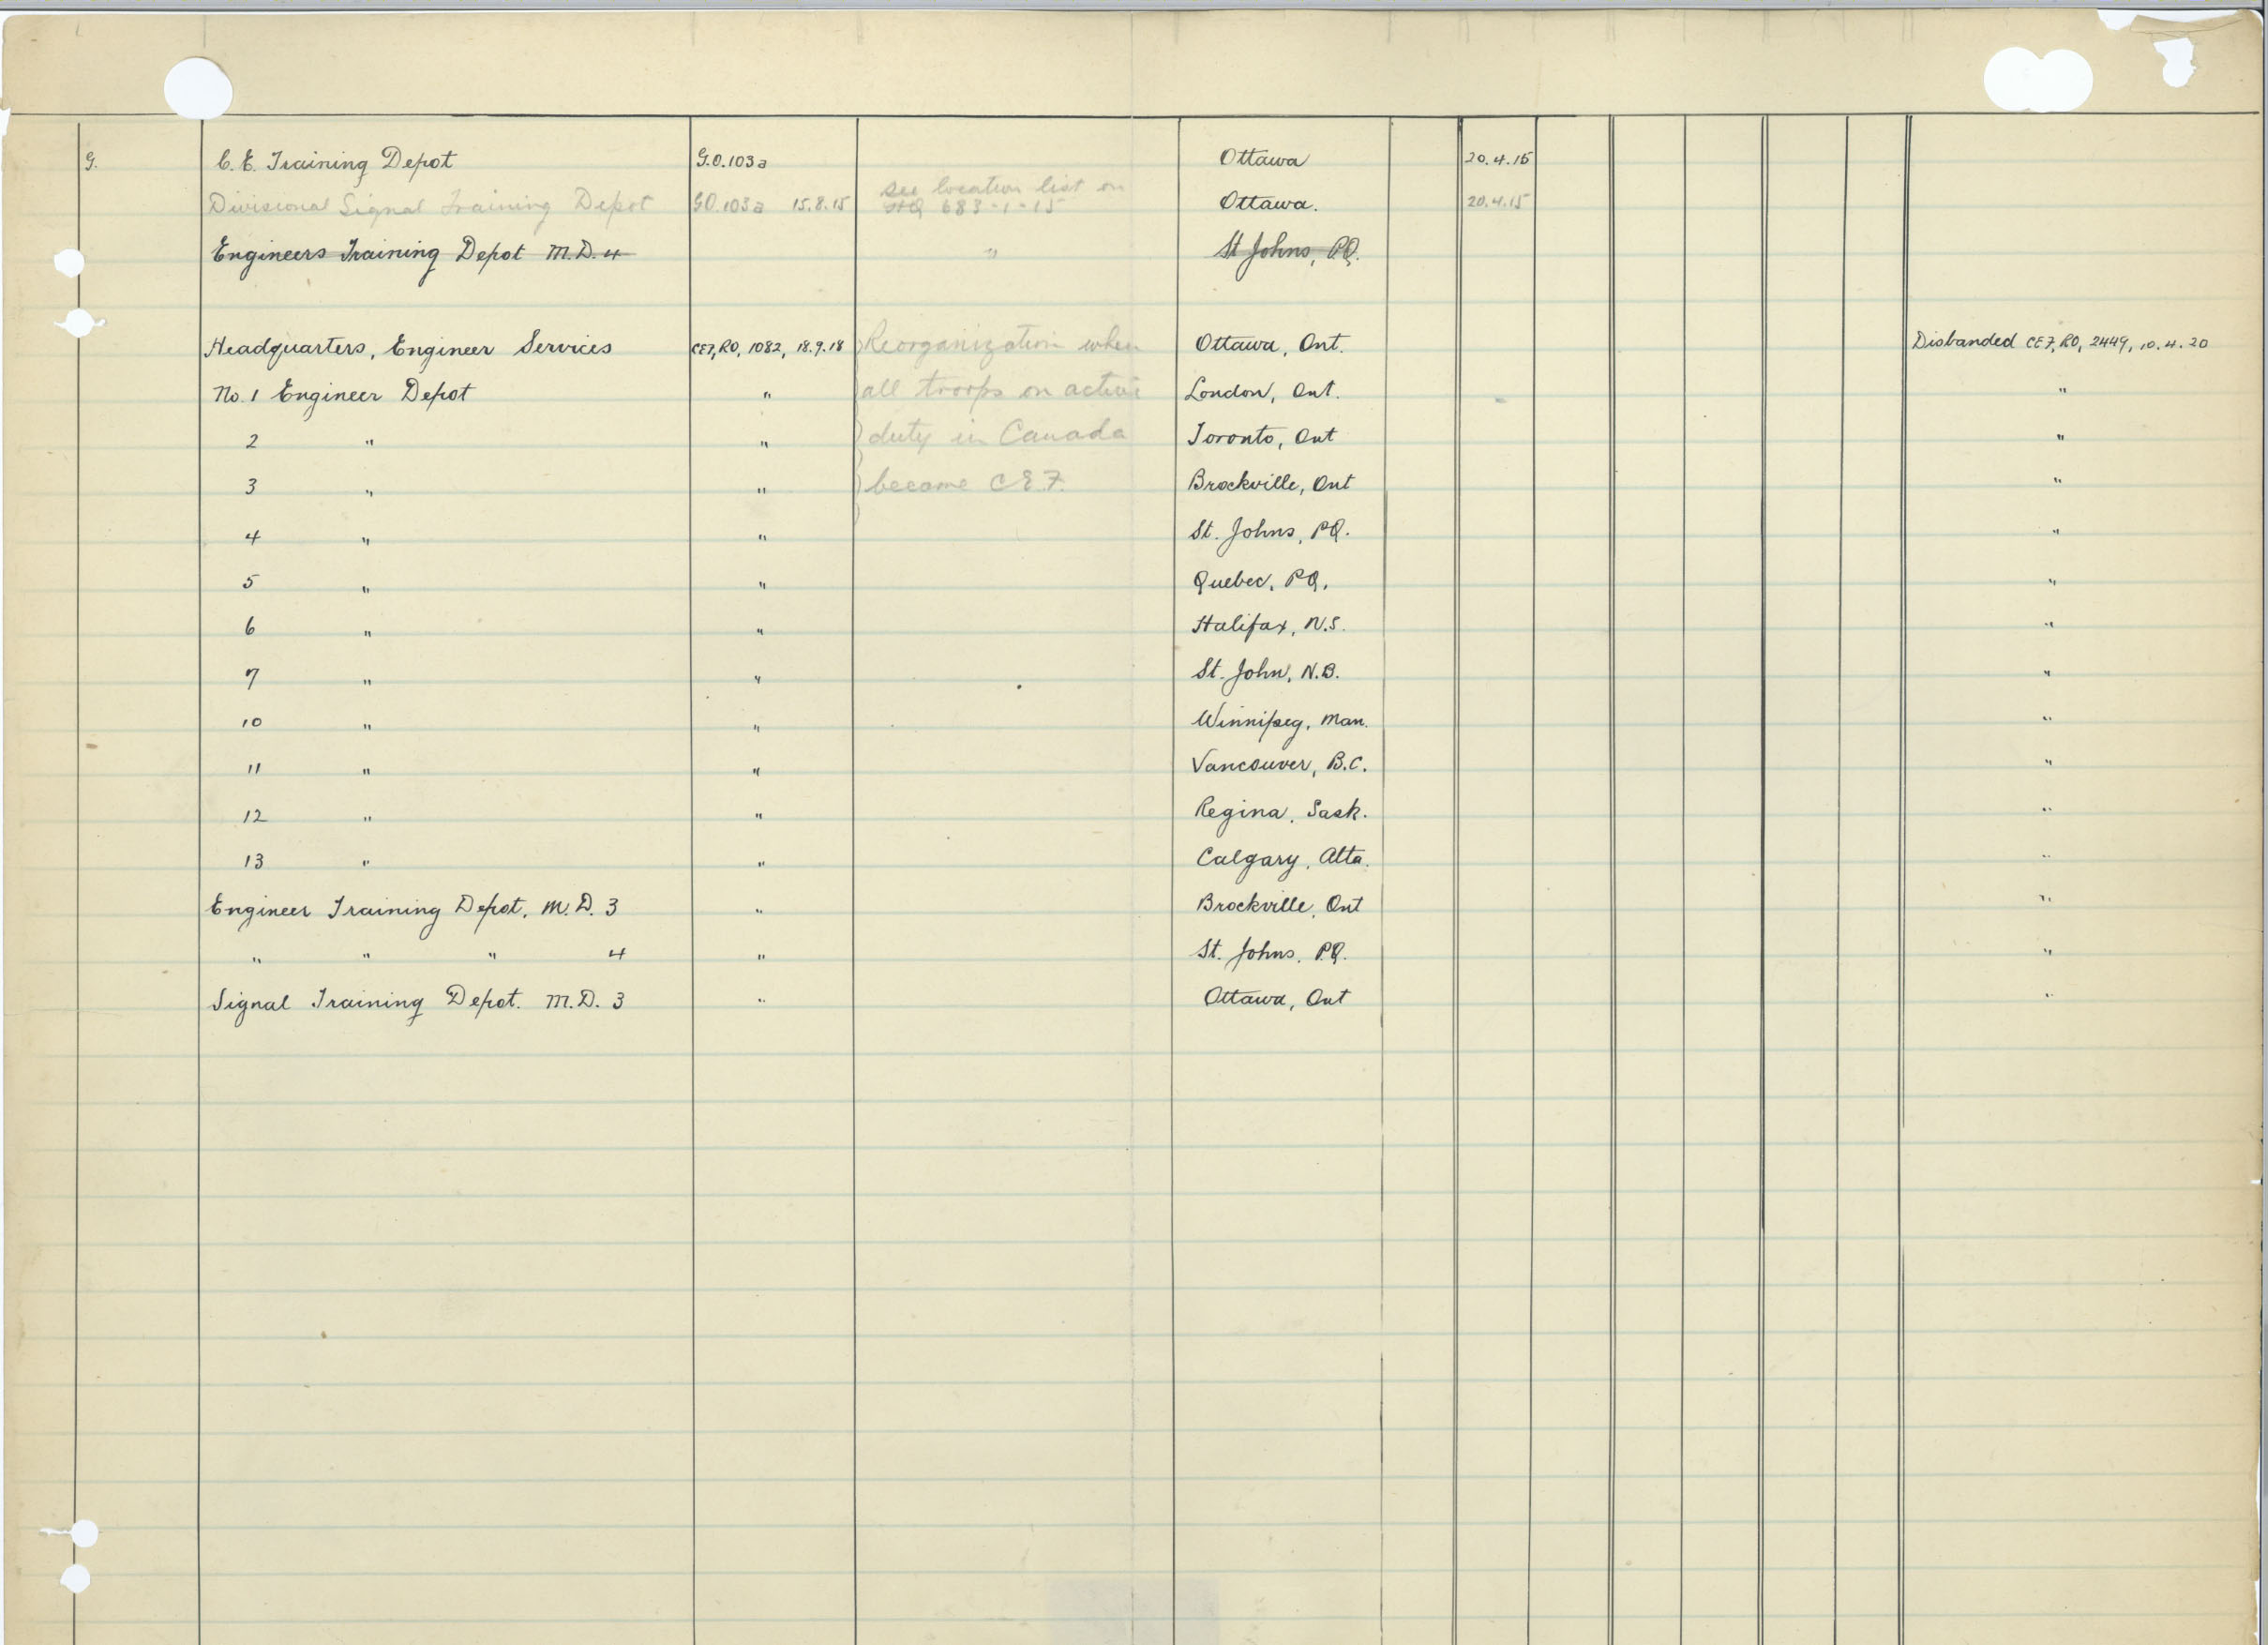 G. C.E. Training Depot G.O.103a Ottawa 20.4.15
Divisional Signal Training Depot G.O.103a 15.8.15 see location list on HQ 683-1-15 Ottawa. 20.4.15
Engineers Training Depot M.D.4 " St Johns, P.Q.
Headquarters, Engineer Services CEF, RO, 1082, 18.9.18 Reorganization when Ottawa, Ont. Disbanded CEF, RO, 2449, 10.4.20
No. 1 Engineer Depot " all troops on active London, Ont. "
2 " " duty in Canada Toronto, Ont "
3 " " became C.E.F. Brockville, Ont "
4 " " St. Johns, P.Q. "
5 " " Quebec, P.Q. "
6 " " Halifax, N.S. "
7 " " St. John, N.B. "
10 " " Winnipeg, Man. "
11 " " Vancouver, B.C. "
12 " " Regina, Sask. "
13 " " Calgary, Alta. "
Engineer Training Depot, M.D. 3 " Brockville, Ont "
" " " 4 " St. Johns, P.Q. "
Signal Training Depot. M.D. 3 " Ottawa, Ont "